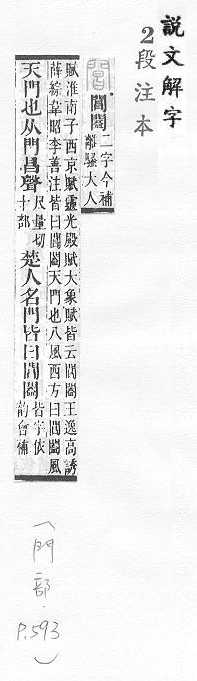 説文解字
2段注本
閶闔二字今補
離騷大人
賦淮南子西京賦靈光殿賦大象賦皆云閶闔王逸高誘
薛綜韋昭李善注皆曰閶闔天門也八風西方曰閶闔風
天門也从門昌聲尺量切十部楚人名門皆曰閶闔皆字依韵會補
（門部．P.593）